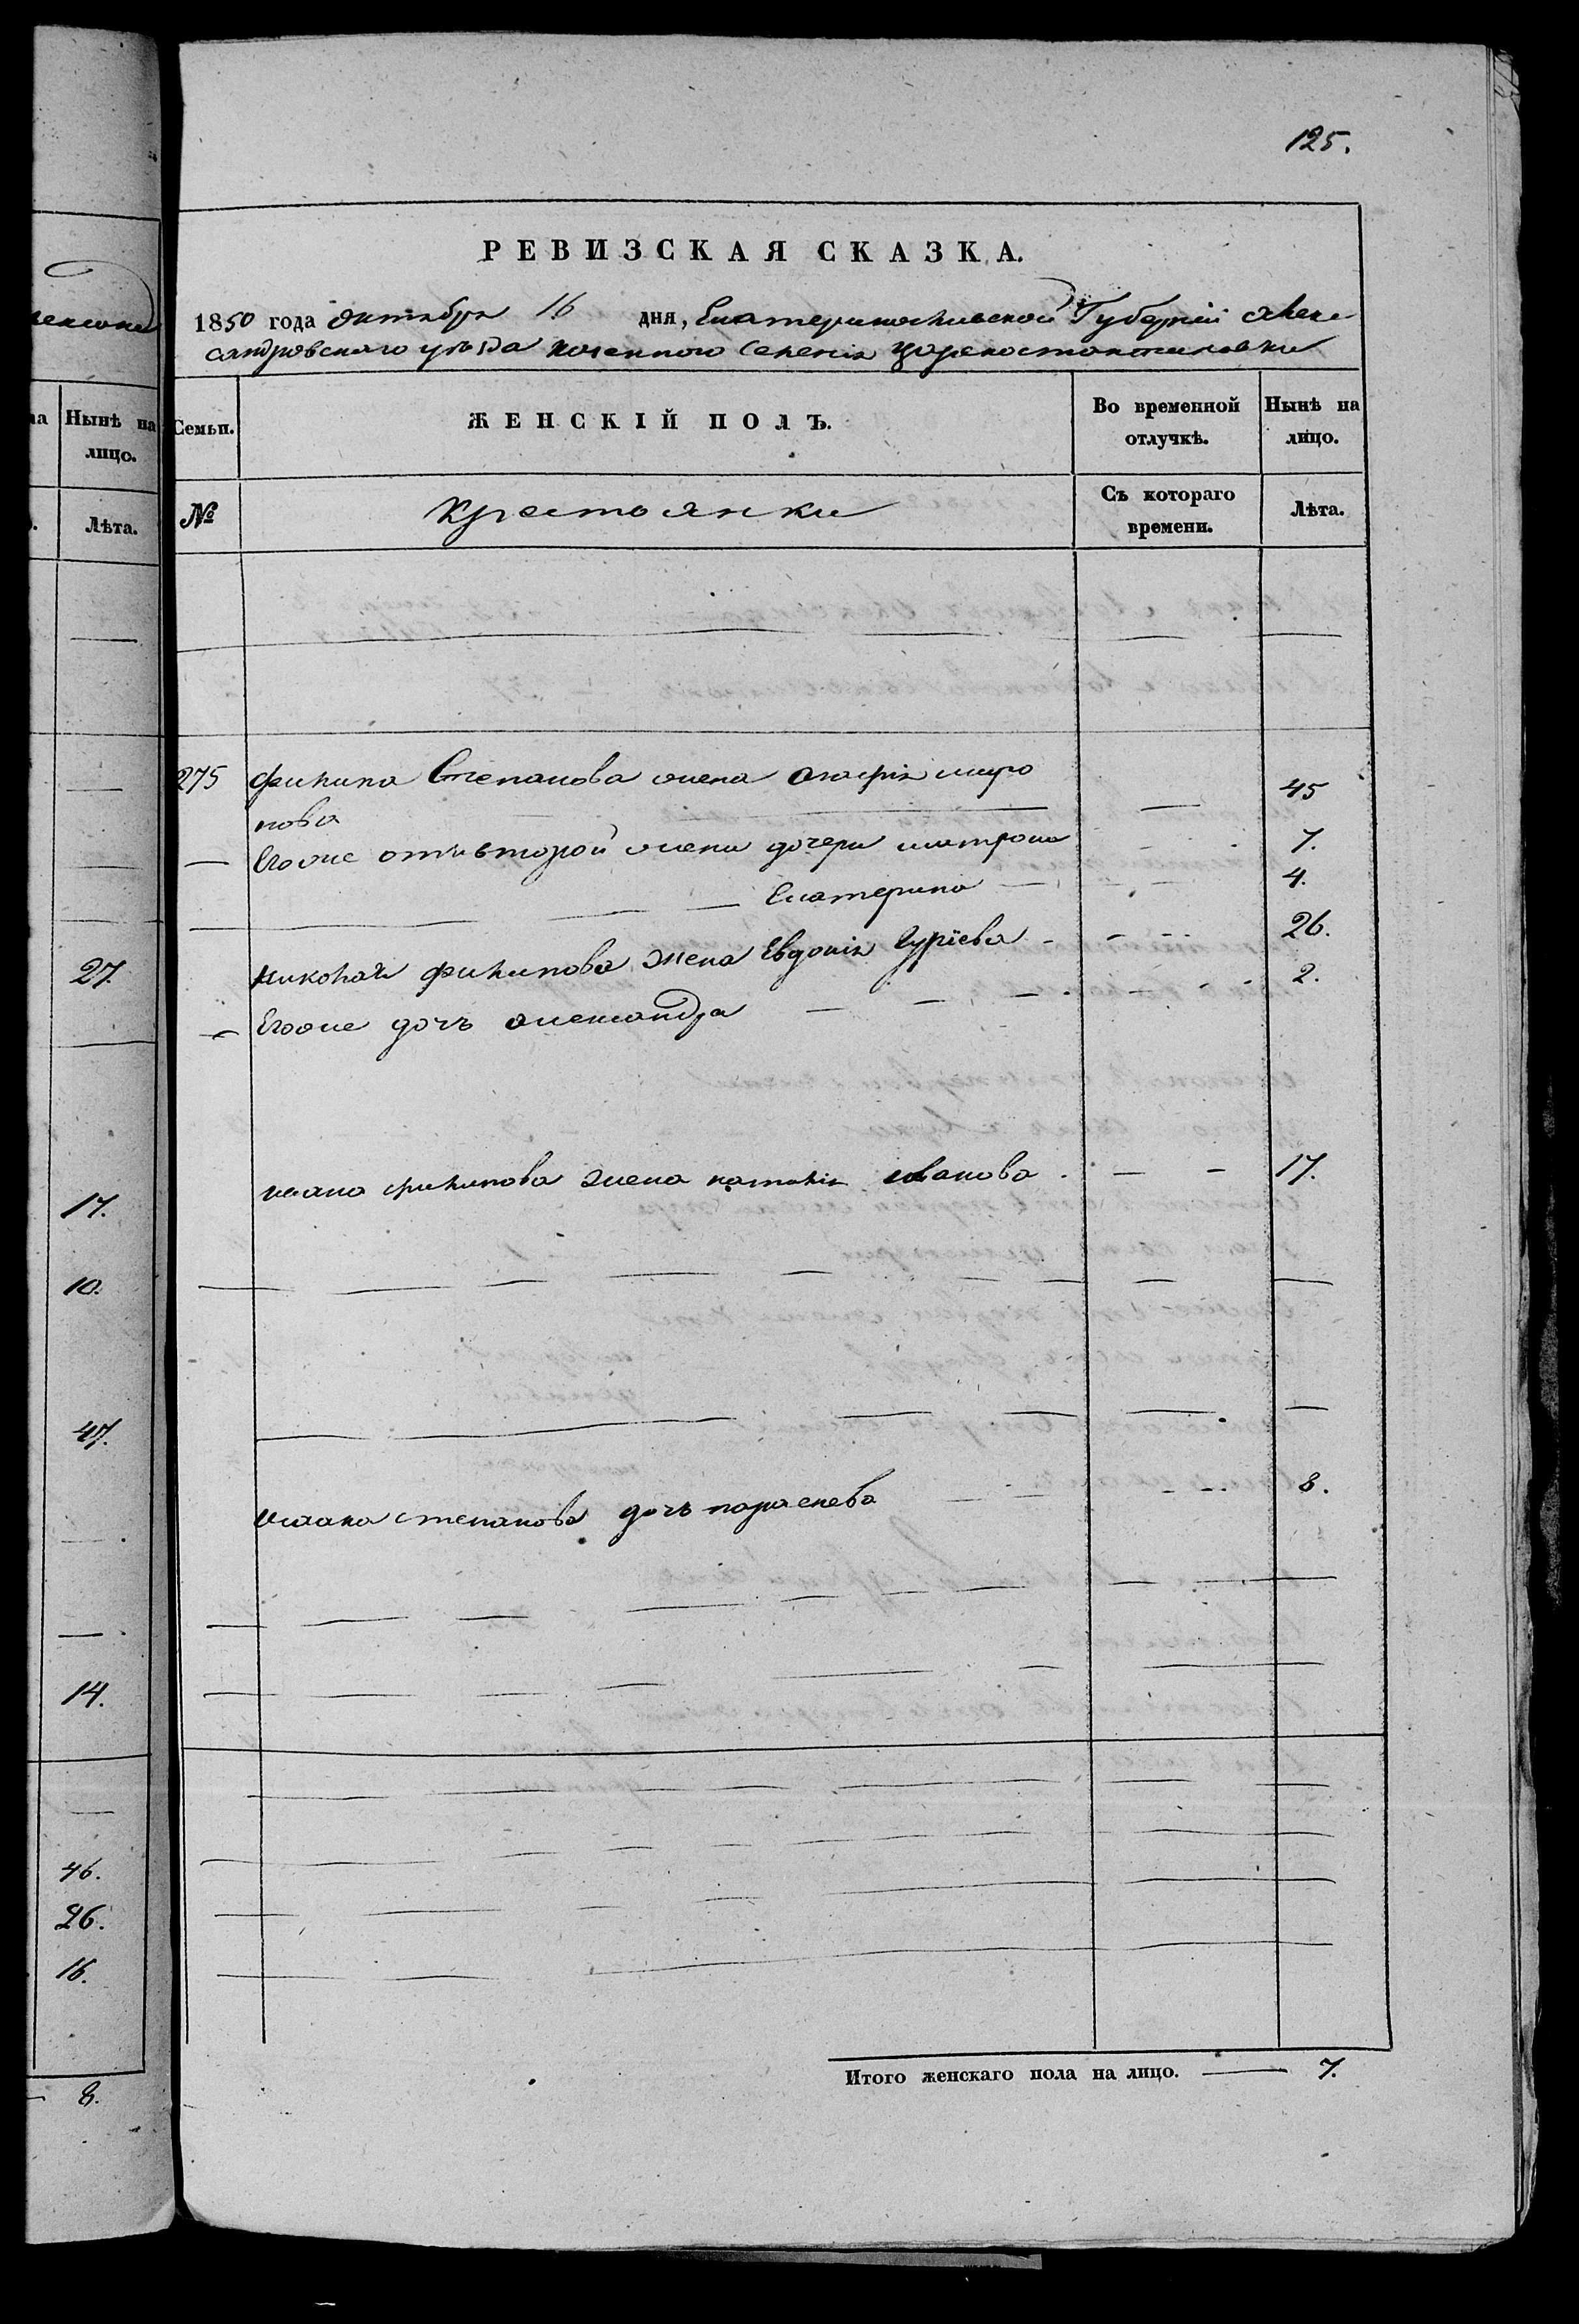 125.
РЕВИЗСКАЯ СКАЗКА.
1850 года октября 16 дня, Екатеринославской Губерніи алек
сандровского уѣзда казенного селенія Цареконстантиновки
Нынѣ на лицо.
Лѣта.
27.
17.
10.
47.
14.
46.
26.
16.
8.
Семьи. ЖЕНСКІЙ ПОЛЪ. Во временной отлучкѣ. Нынѣ на лицо.
№ Крестьянки Съ котораго времени. Лѣта.
275 филипа Степанова жена миро
нова 45
Егоже отъ второй жены дочери матрона 7.
Екатерина 4.
николай филипова жена Евдокія Гурiева 26.
Егоже дочь александра 2.
ивана филипова жена наталія иванова 17.
ивана степанова дочь параскева 8.
Итого женскаго пола на лицо. 7.